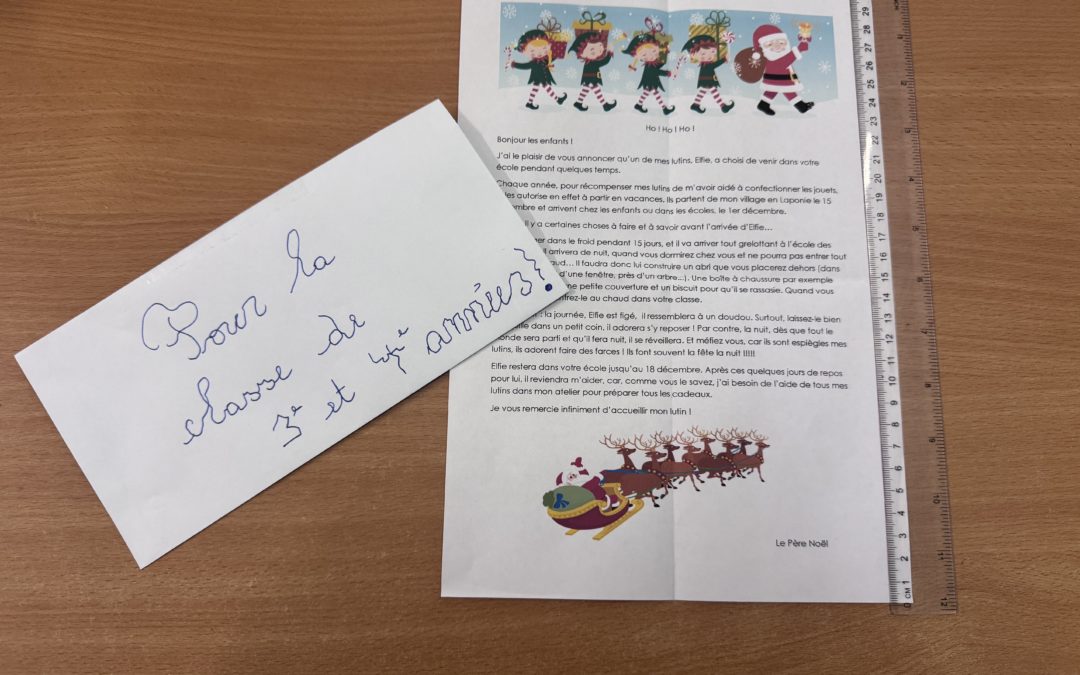 Ho ! Ho ! Ho !
Bonjour les enfants !
J'ai le plaisir de vous annoncer qu'un de mes lutins, Elfie, a choisi de venir dans votre
école pendant quelques temps.
Chaque année, pour récompenser mes lutins de m'avoir aidé à confectionner les jouets,
les autorise en effet à partir en vacances. Ils partent de mon village en Laponie le 15
embre et arrivent chez les enfants ou dans les écoles, le 1er décembre.
il y a certaines choses à faire et à savoir avant l'arrivée d'Elfie...
er dans le froid pendant 15 jours, et il va arriver tout grelottant à l'école des
il arrivera de nuit, quand vous dormirez chez vous et ne pourra pas entrer tout
aud... Il faudra donc lui construire un abri que vous placerez dehors (dans
d'une fenêtre, près d'un arbre...). Une boîte à chaussure par exemple
ne petite couverture et un biscuit pour qu'il se rassasie. Quand vous
trez-le au chaud dans votre classe.
: la journée, Elfie est figé, il ressemblera à un doudou. Surtout, laissez-le bien
dans un petit coin, il adorera s'y reposer ! Par contre, la nuit, dès que tout le
onde sera parti et qu'il fera nuit, il se réveillera. Et méfiez vous, car ils sont espiègles mes
lutins, ils adorent faire des farces ! Ils font souvent la fête la nuit !!!!!
Elfie restera dans votre école jusqu'au 18 décembre. Après ces quelques jours de repos
pour lui, il reviendra m'aider, car, comme vous le savez, j'ai besoin de l'aide de tous mes
lutins dans mon atelier pour préparer tous les cadeaux.
Je vous remercie infiniment d'accueillir mon lutin !
Le Père Noël
Pour la
classe de
3e et 4e années!
29
28
27
26
25
24
23
22
21
20
19
18
17
16
15
14
13
12
11
10
9
8
7
6
5
4
3
2
1
0 CM